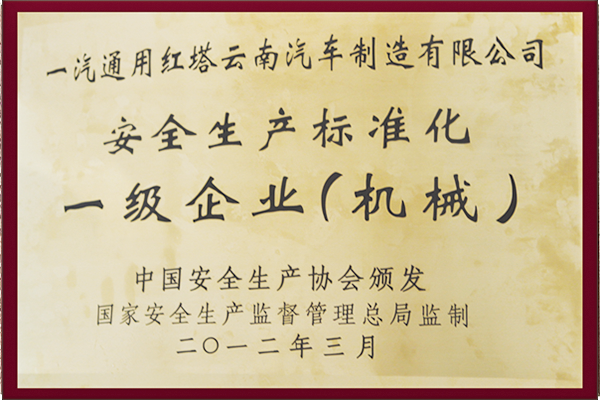 一汽通用红塔云南汽车制造有限公司
安全生产标准化
一级企业(机械)
中国安全生产协会颁发
国家安全生产监督管理总局监制
二〇一二年三月